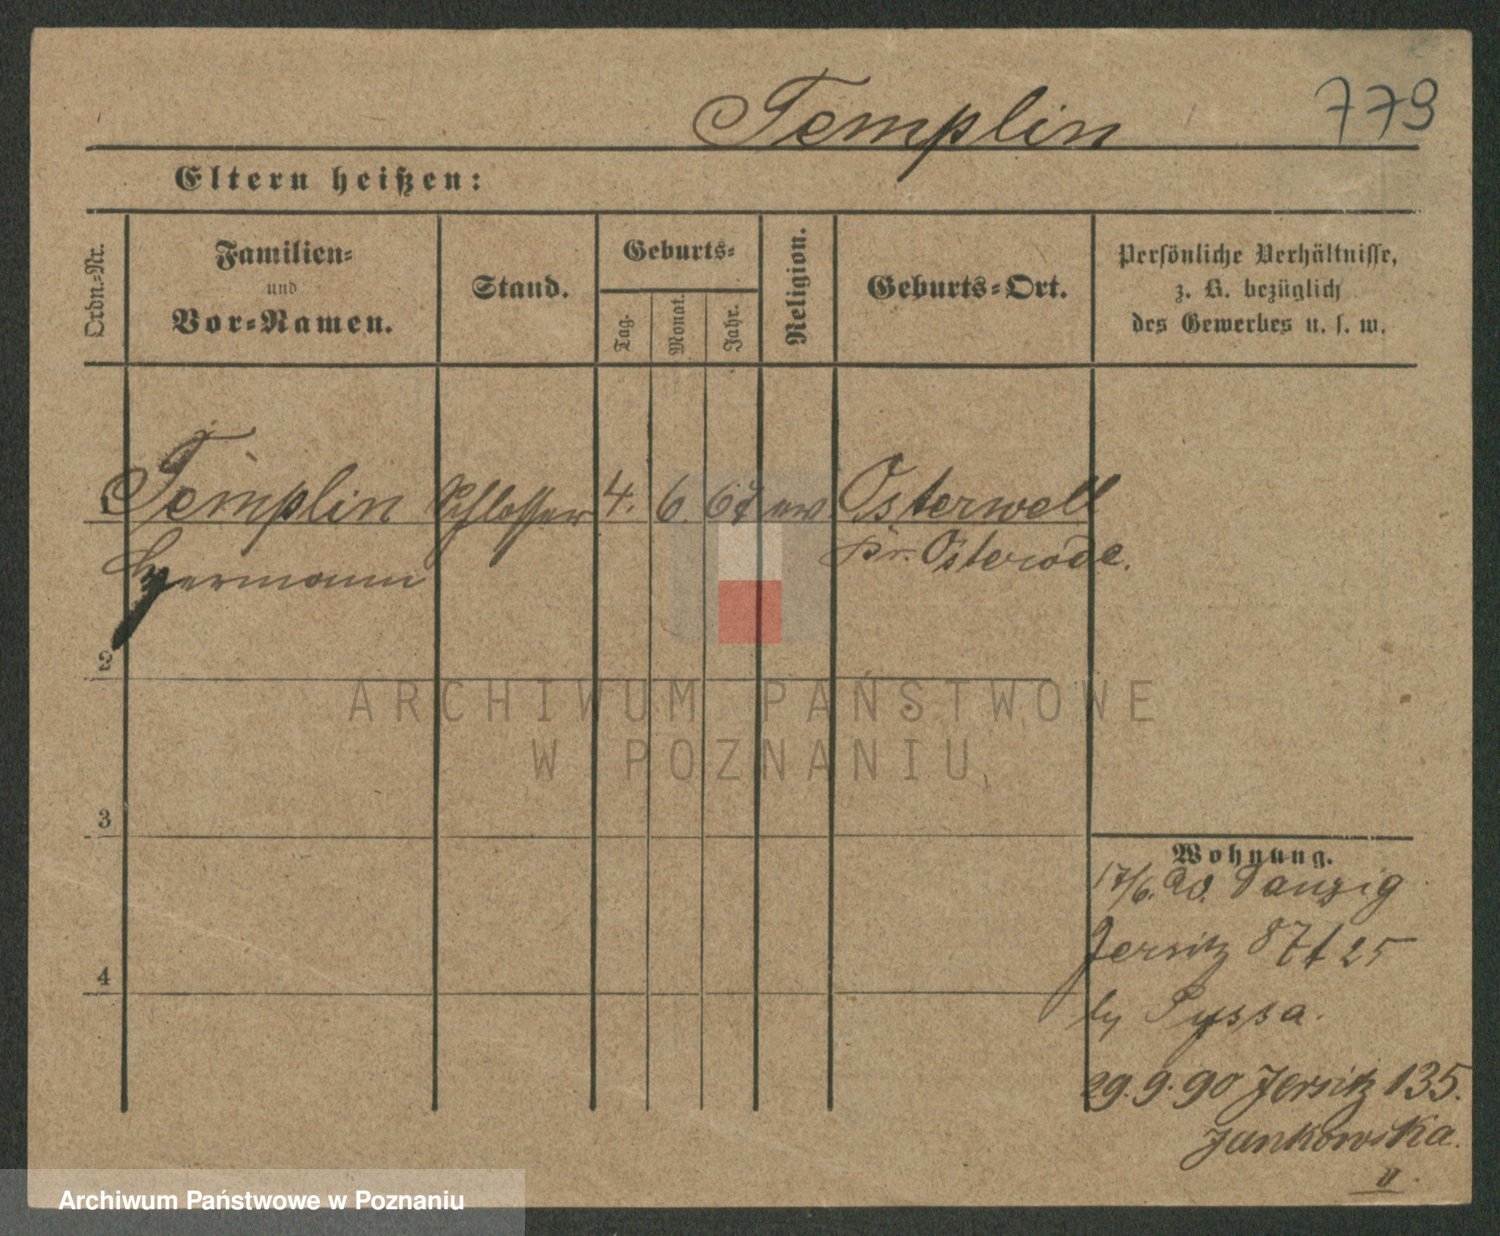 Templin 779
Eltern heißen:
Ordn.-Nr.
Familien-
und
Vor-Namen.
Stand.
Geburts-
Tag.
Monat.
Jahr.
Religion.
Geburts-Ort.
Persönliche Verhältnisse,
z. B. bezüglich
des Gewerbes u. s. w.
1 Templin Schlosser 4. 6. 67 ew Osterwell
Hermann Kr. Osterode.
2
3
4
Wohnung.
17/6. 90. Danzig
Jersitz 87 f 25
by Pyssa.
29.9.90 Jersitz 135.
Jankowska.
ARCHIWUM PAŃSTWOWE
W POZNANIU
Archiwum Państwowe w Poznaniu